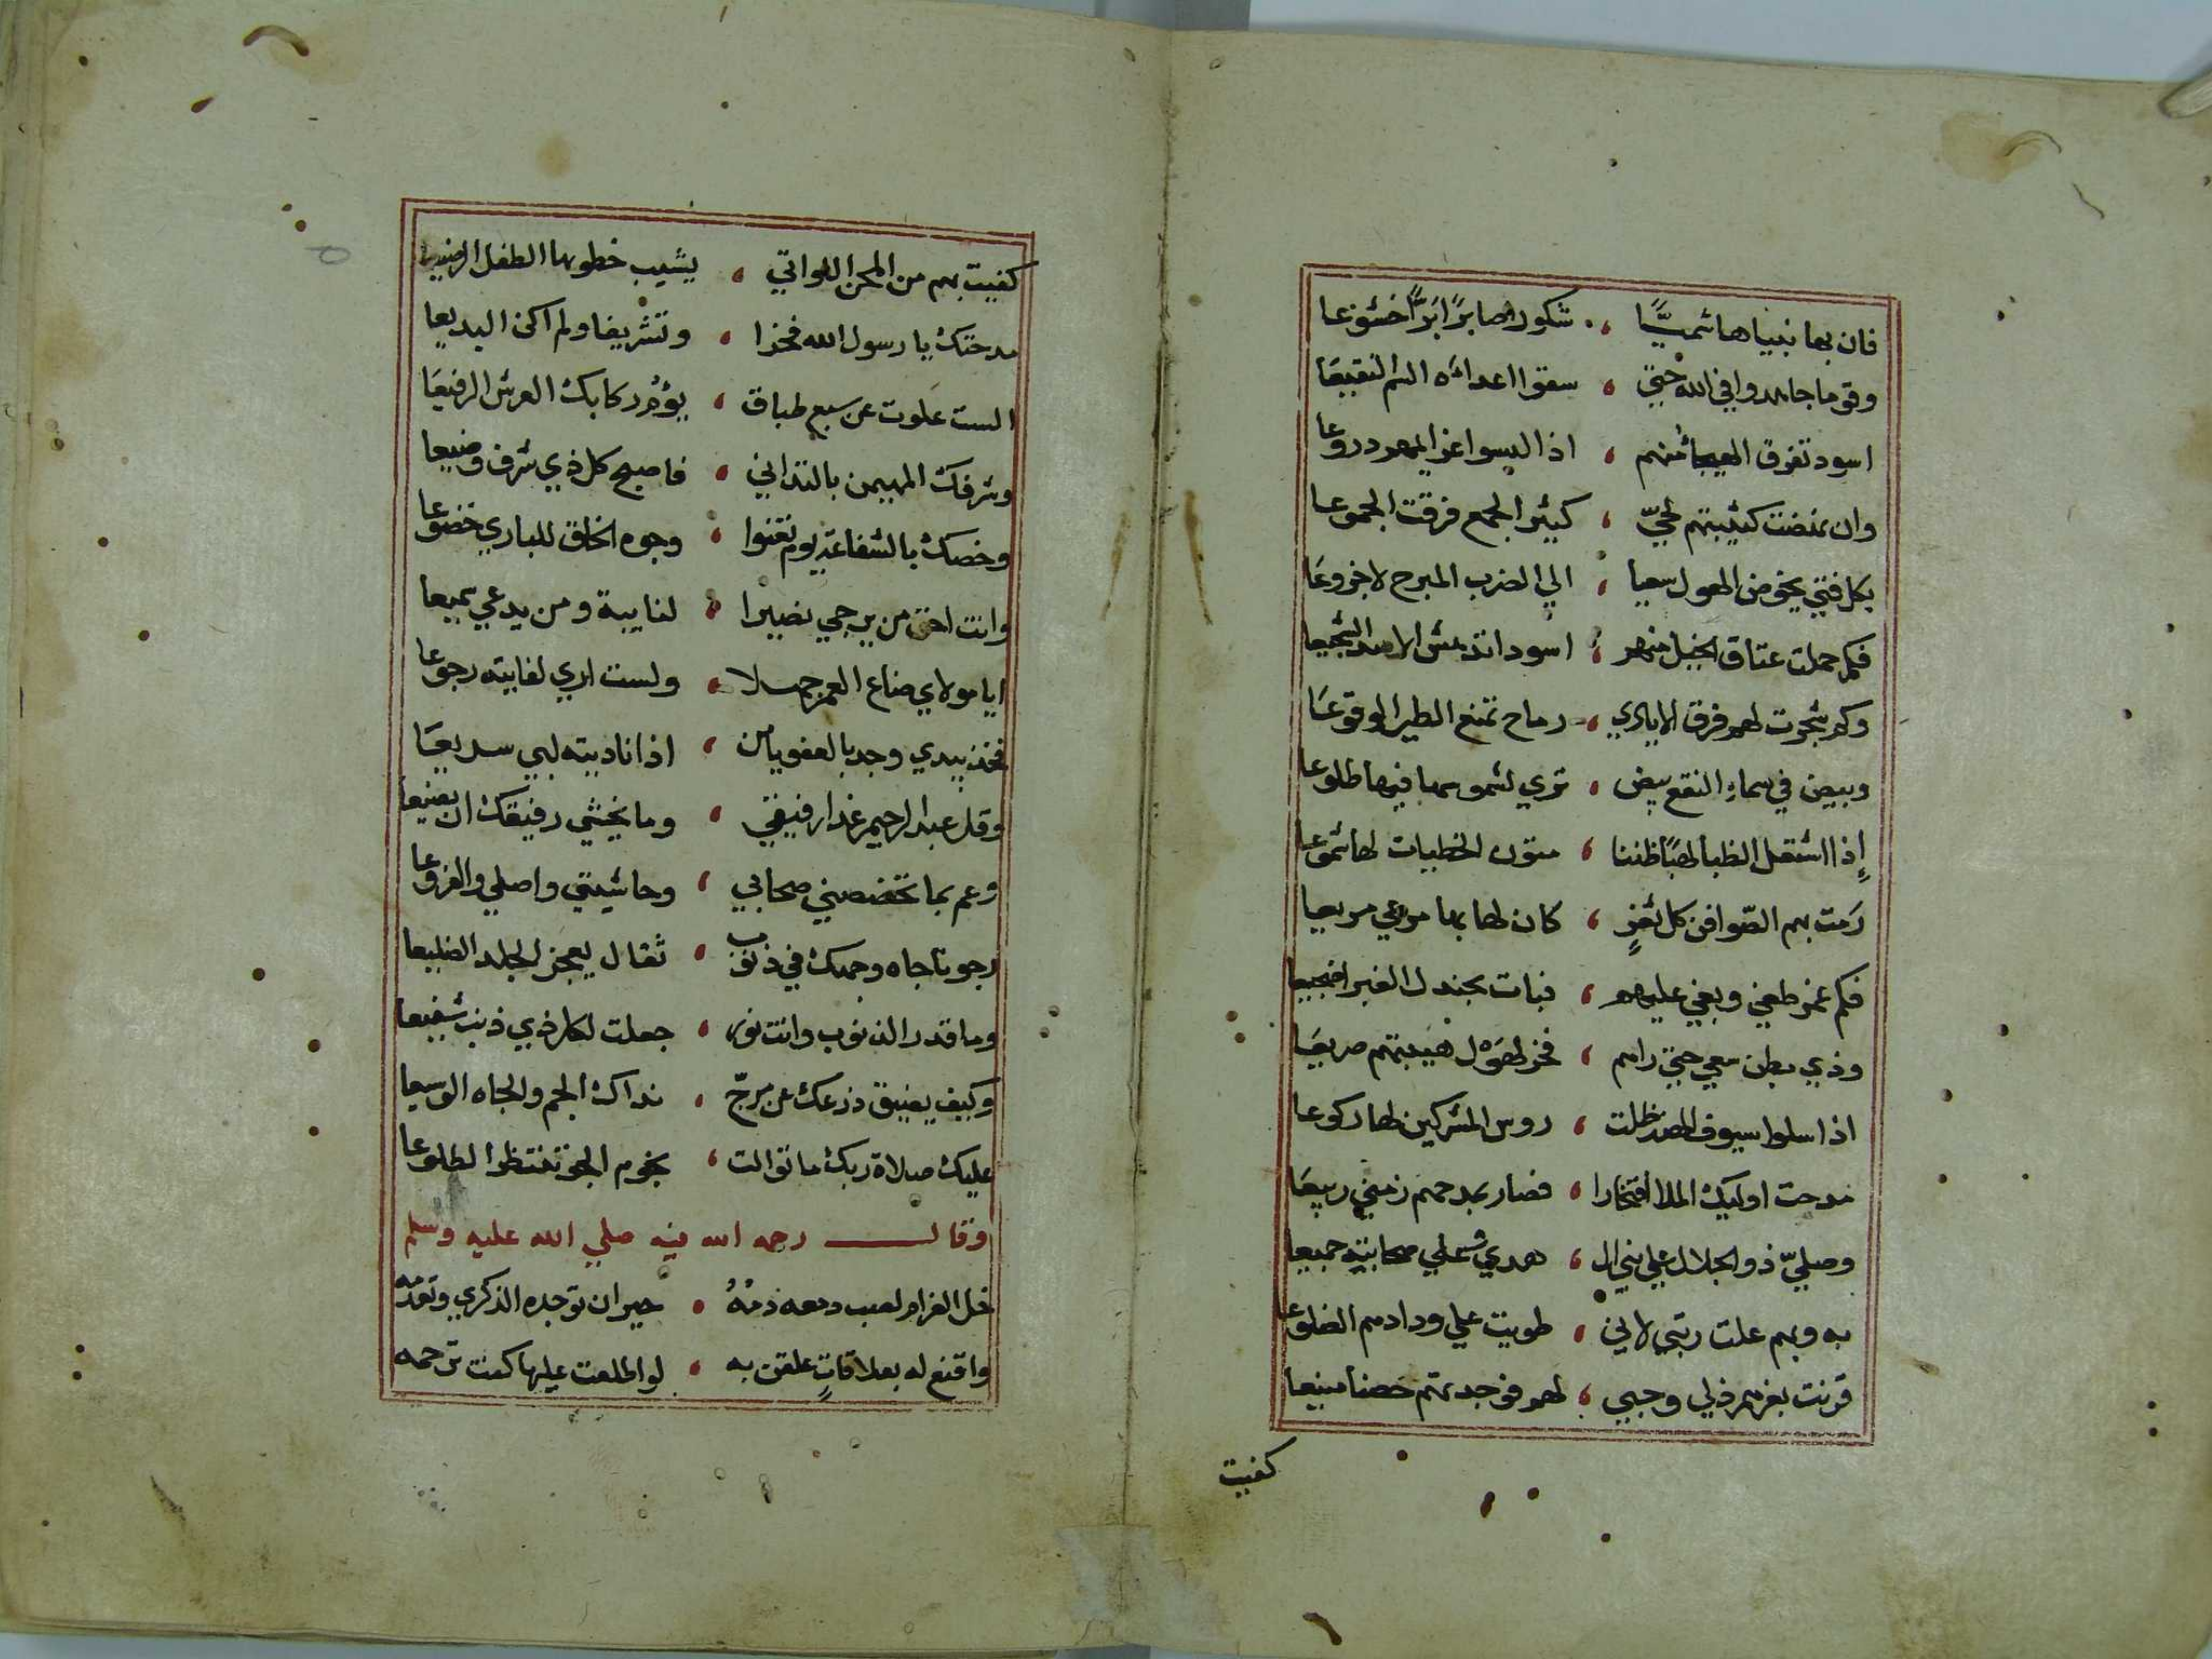 فان بها نبيا هاشميًّا ، شكورا صابرًا برًّا خشوعا
وقوما جاهدوا في الله حتى ، سقوا اعدائه السم النقيعا
اسود تفرق الهيجا منهم ، اذا لبسوا عزايمهم دروعا
وان نهضت كتيبتهم لحيّ ، كثير الجمع فرقت الجموعا
بكل فتى يخوض الهول سعيا ، الي الضرب المبرح لا جزوعا
فكم حملت عتاق الخيل منهم ، اسودا تدهش الاسد الشجيعا
وكم شجرت لهم فرق الايادي ، رماح تمنع الطير الوقوعا
وبيض في سماء النقع بيض ، تري لشموسها فيها طلوعا
إذا اشتعل الظبا لهبًا ظننا ، متون الخطيات لها شموعا
رَمت بهم الصّوافن كل ثغرٍ ، كان لها بها مرعي مريعا
فكم غمر طغي وبغي عليهم ، فبات بجندل الغبرا ضجيعا
وذي بطن سعي حتى راهم ، فخر لهَول هيبتهم صريعا
اذا سلوا سيوف الهند ظلت ، روس المشركين لها ركوعا
مدحت اوليك الملا افتخارا ، فصار بمدحهم زمني ربيعا
وصلّي ذو الجلال علي نبي ال ، هدي وعلي صحابته جميعا
به وبهم علت رتبي لاني ، طويت علي ودادهم الضلوعا
قرنت بعزهم ذلي وحبي ، لهم فوجدتهم حصنا منيعا
كفيت
كفيت بهم من المحن اللواتي ، يشيب خطوبها الطفل الرضيعا
مدحتك يا رسول الله فخرا ، وتشريفا ولم اكن البديعا
الست علوت عن سبع طباق ، يؤم ركابك العرش الرفيعا
وشرفك المهيمن بالتداني ، فاصبح كل ذي شرف وضيعا
وخصك بالشفاعة يوم تعنوا ، وجوه الخلق للباري خضوعا
وانت احق من يرجي نصيرا ، لنايبة ومن يدعي سميعا
ايا مولاي ضاع العمر جهلا ، ولست اري لغايبه رجوعا
فخذ بيدي وجد بالعفو يا من ، اذا ناديته لبي سريعا
وقل عبد الرحيم غدا رفيقي ، وما يخشي رفيقك ان يضيعا
وعم بما تخصصني صحابي ، وحاشيتي واصلي والفروعا
رجوتا جاه وجهك في ذنوب ، ثقال يعجز الجلد الضليعا
وما قدر الذنوب وانت نور ، جعلت لكل ذي ذنب شفيعا
وكيف يضيق ذرعك عن مرجّ ، نداك الجم والجاه الوسيعا
عليك صلاة ربك ما توالت ، نجوم الجو تنتظر الطلوعا
وقال رحمه الله فيه صلي الله عليه وسلم
خل الغرام لصب دمعه دمُهُ ، حيران توجده الذكري وتعدمه
واقنع له بعلاقاتٍ علقن به ، لو اطلعت عليها كنت ترحمه